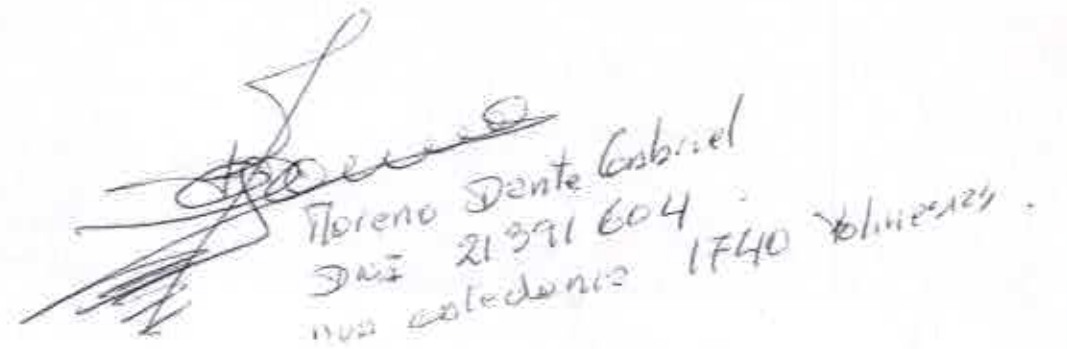 Moreno Dante Gabriel
DNI 21 391 604
caledonia 1740